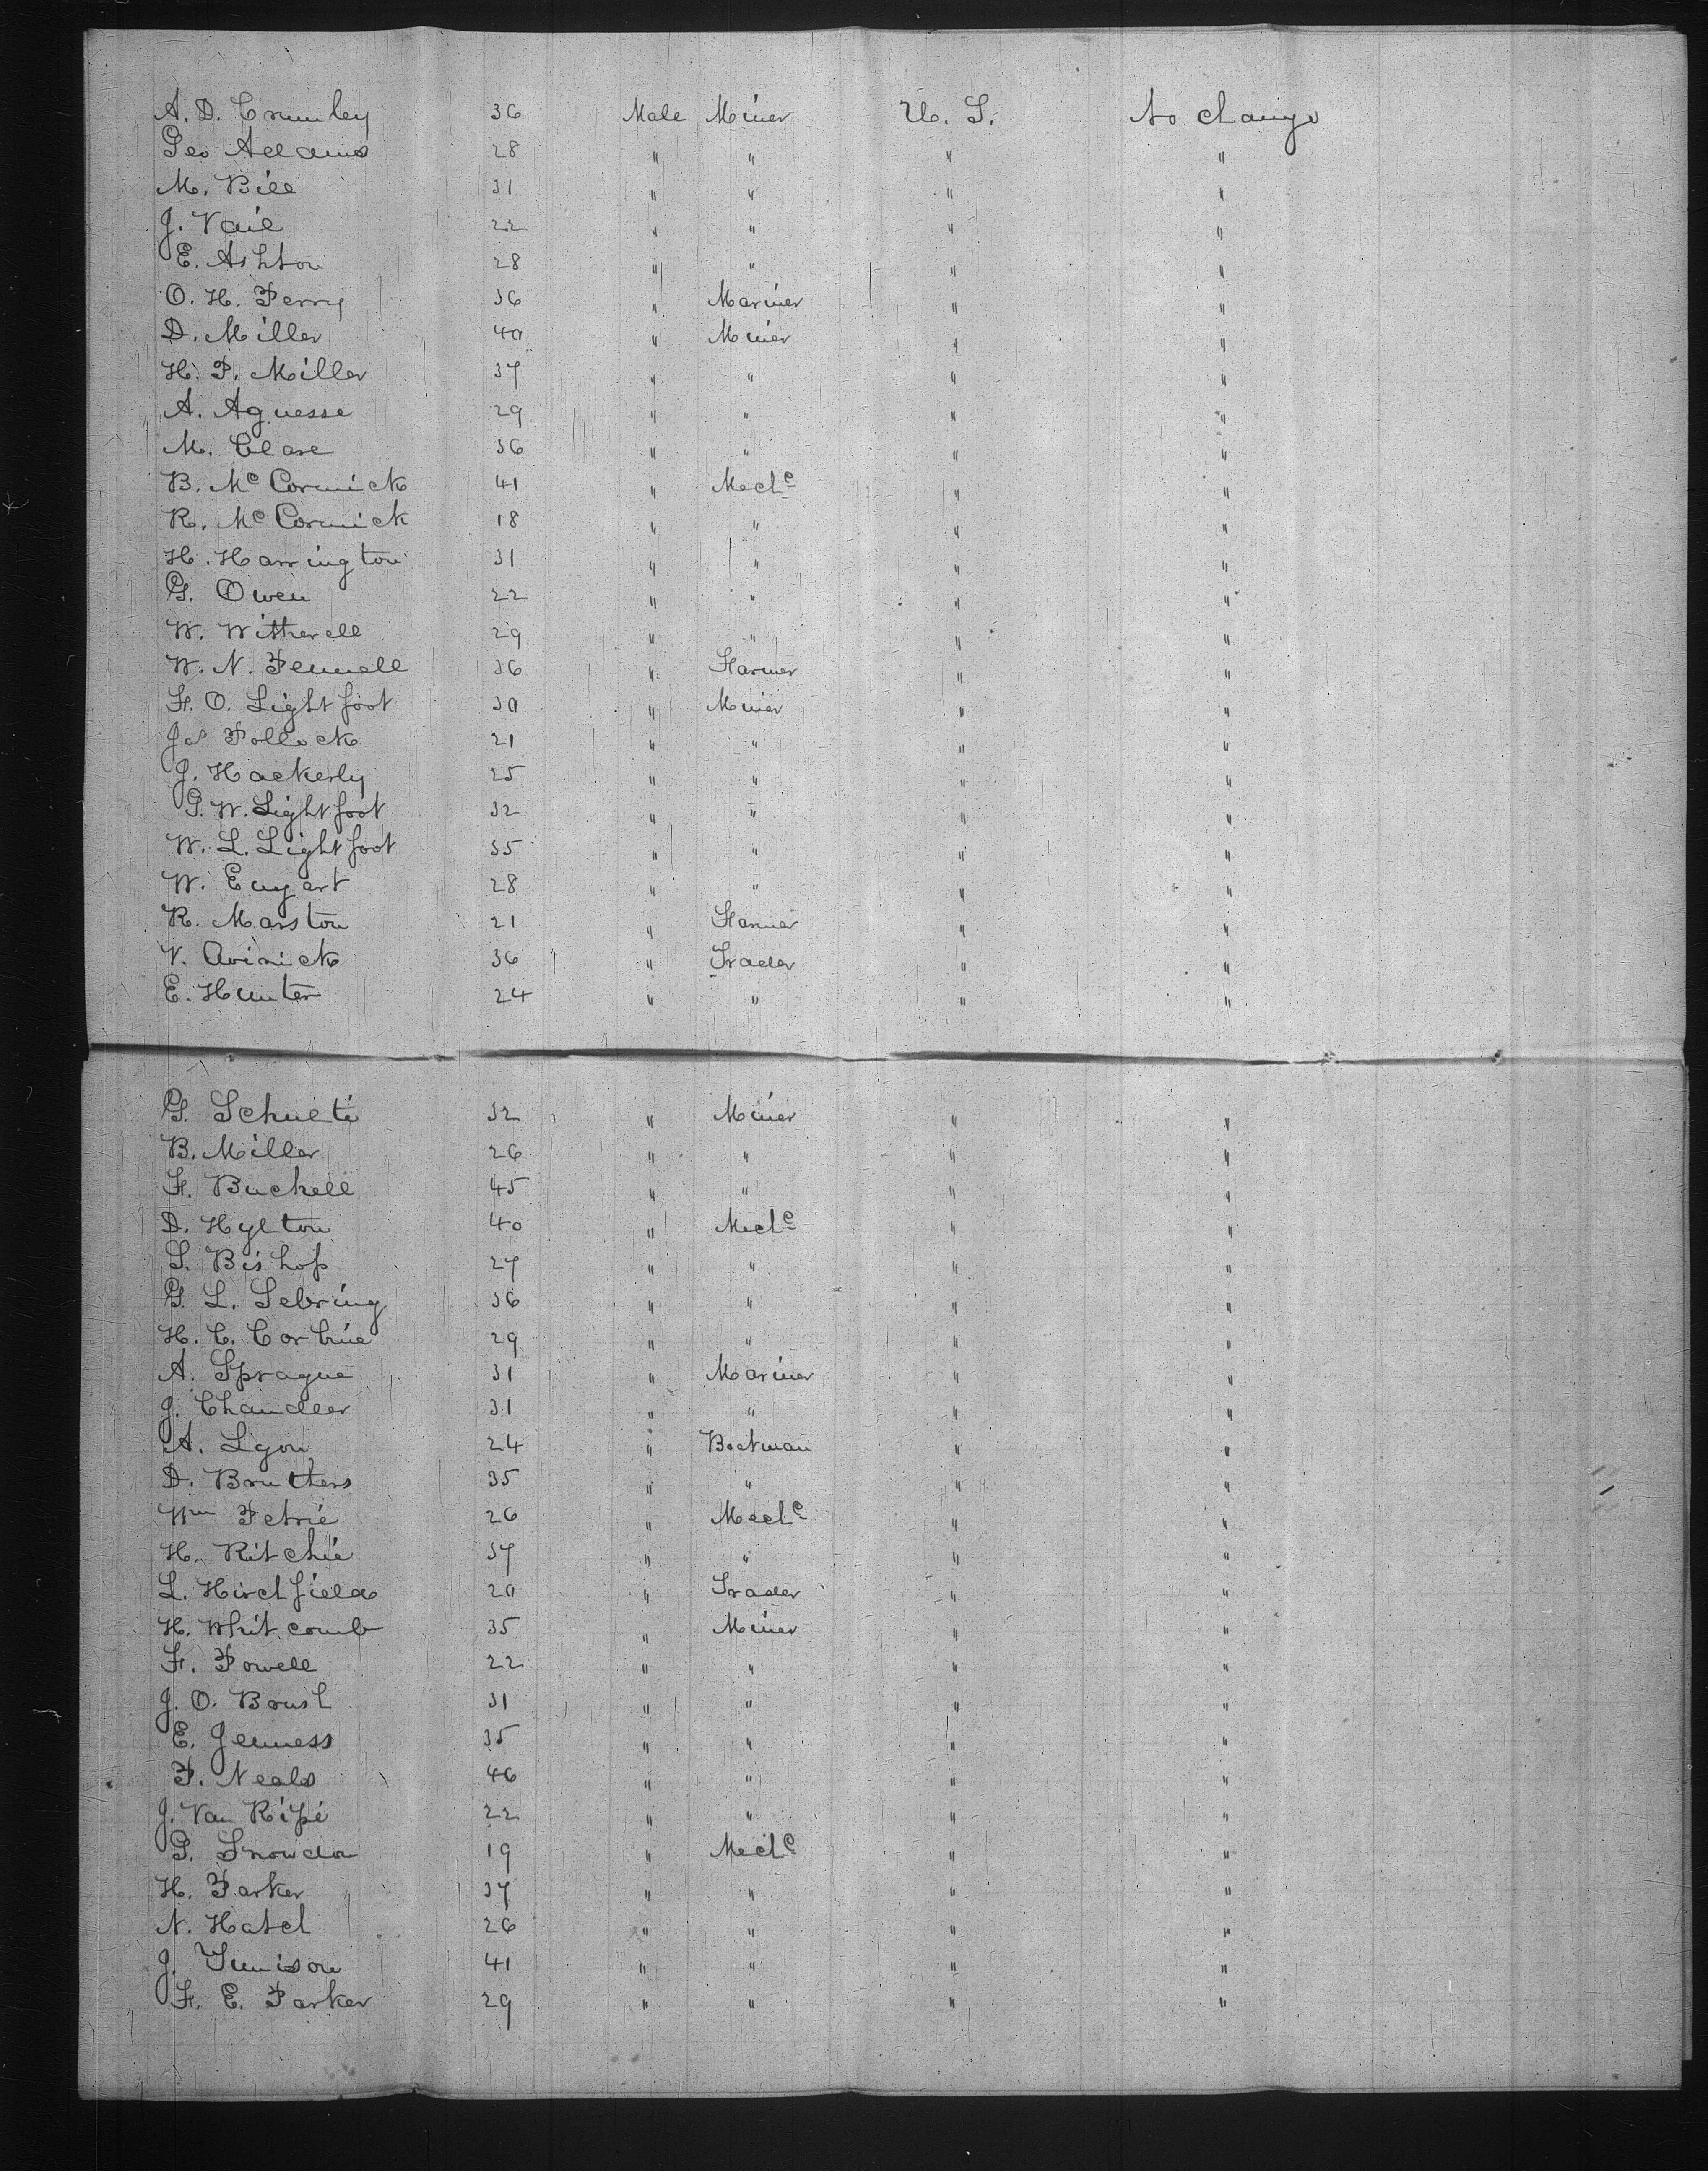 A. D. Crumley 36 Male Miner U. S. No change
Geo Adams 28 " " " "
M. Bill 31 " " " "
J. Vail 22 " " " "
E. Ashton 28 " " " "
O. H. Perry 36 " Mariner " "
D. Miller 40 " Miner " "
H. P. Miller 37 " " " "
A. Aguesse 29 " " " "
M. Clare 36 " " " "
B. McCormick 41 " Mechc " "
R. McCormick 18 " " " "
H. Harrington 31 " " " "
G. Owen 22 " " " "
W. Witherell 29 " " " "
W. N. Pennell 36 " Farmer " "
F. O. Lightfoot 30 " Miner " "
Js Pollock 21 " " " "
J. Hackerly 25 " " " "
G. W. Lightfoot 32 " " " "
W. L. Lightfoot 35 " " " "
W. Engart 28 " " " "
R. Marston 21 " Farmer " "
V. 36 " Trader " "
E. Hunter 24 " " " "
G. Schulti 32 " Miner " "
B. Miller 26 " " " "
F. Buckell 45 " " " "
D. Hylton 40 " Mechc " "
S. Bishop 27 " " " "
G. L. Sebring 36 " " " "
H. C. Corbrie 29 " " " "
A. Sprague 31 " Mariner " "
J. Chandler 31 " " " "
A. Lyon 24 " Boatman " "
D. Bruthers 35 " " " "
Wm Petrie 26 " Mechc " "
H. Ritchie 37 " " " "
L. Hirchfield 20 " Trader " "
H. Whitcomb 35 " Miner " "
F. Powell 22 " " " "
J. O. Brush 31 " " " "
E. Jenness 35 " " " "
P. Neals 46 " " " "
J. Van Ripé 22 " " " "
G. Snowdon 19 " Mechc " "
H. Parker 37 " " " "
N. Hatch 26 " " " "
J. Tunison 41 " " " "
F. E. Parker 29 " " " "